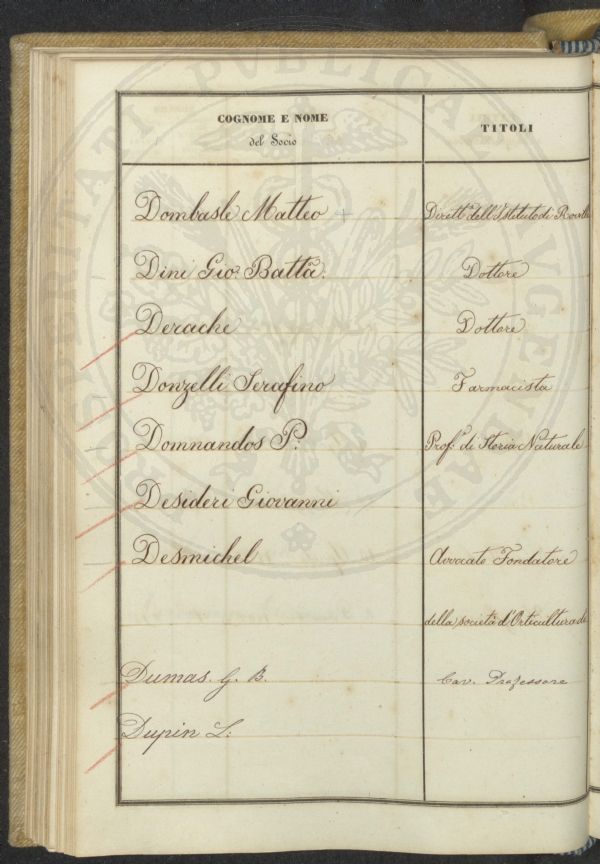 COGNOME E NOME
del Socio
TITOLI
Dombasle Matteo
Dirett. dell'Istituto di Roville
Dini Gio. Battã.
Dottore
Derache
Dottore
Donzelli Serafino
Farmacista
Domnandos P.
Prof. di Storia Naturale
Desideri Giovanni
Desmichel
Avvocato Fondatore
della società d'Orticultura di
Dumas. G. B.
Cav. Professore
Dupin L: